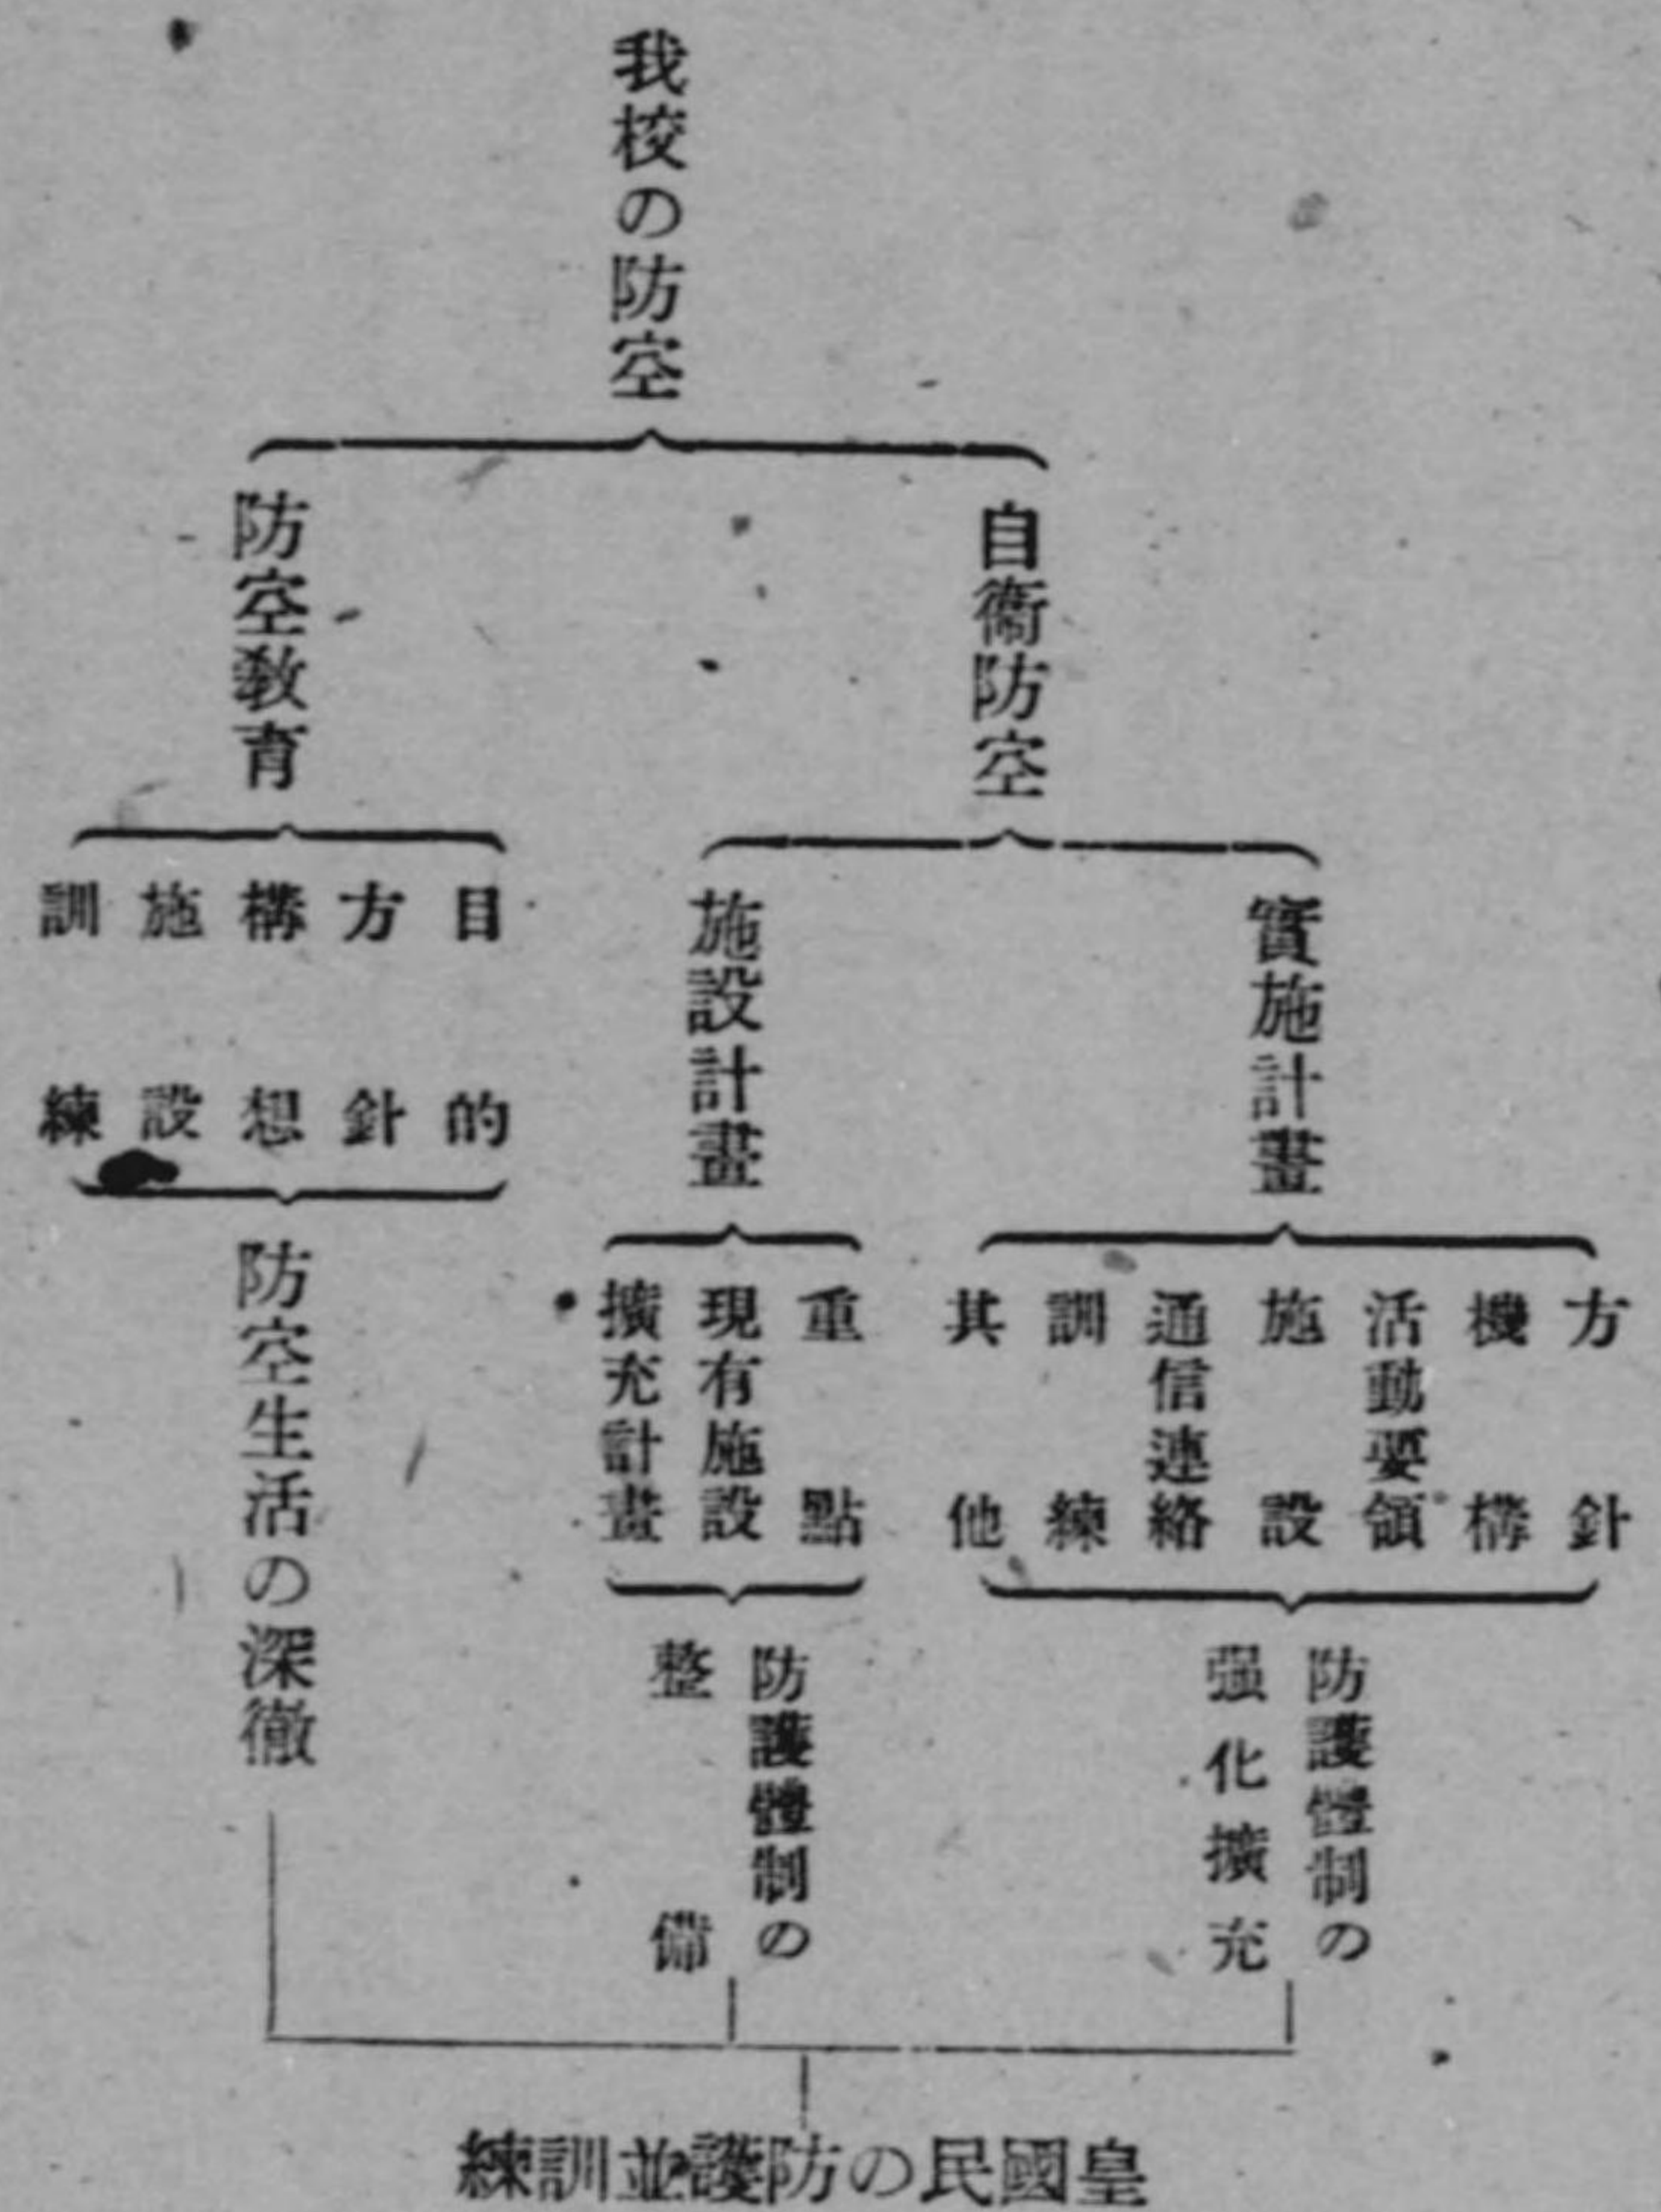 我校の防空
自衞防空
實施計畫
方針
機構
活動要領
施設
通信連絡
訓練
其他
防護體制の
强化擴充
施設計畫
重點
現有施設
擴充計畫
防護體制の
整備
防空敎育
目的
方針
構想
施設
訓練
防空生活の深徹
皇國民の防護並訓練